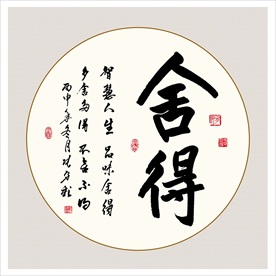 舍得
智慧人生 品味舍得
多舍多得 不舍不得
丙申年冬月